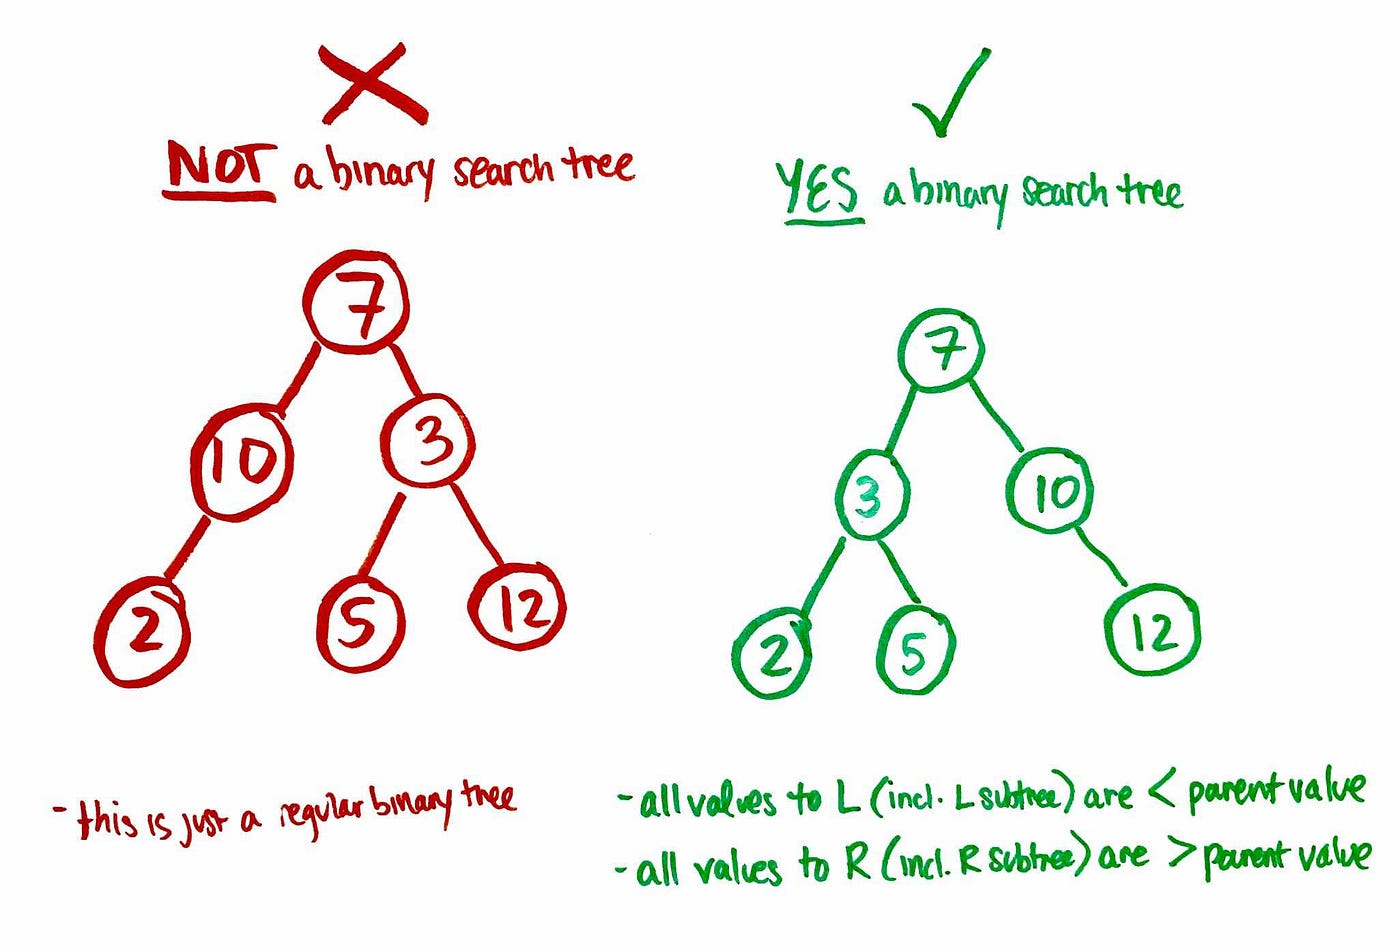 NOT a binary search tree
7
10 3
2 5 12
- this is just a regular binary tree
YES a binary search tree
7
3 10
2 5 12
- all values to L (incl. L subtree) are < parent value
- all values to R (incl. R subtree) are > parent value